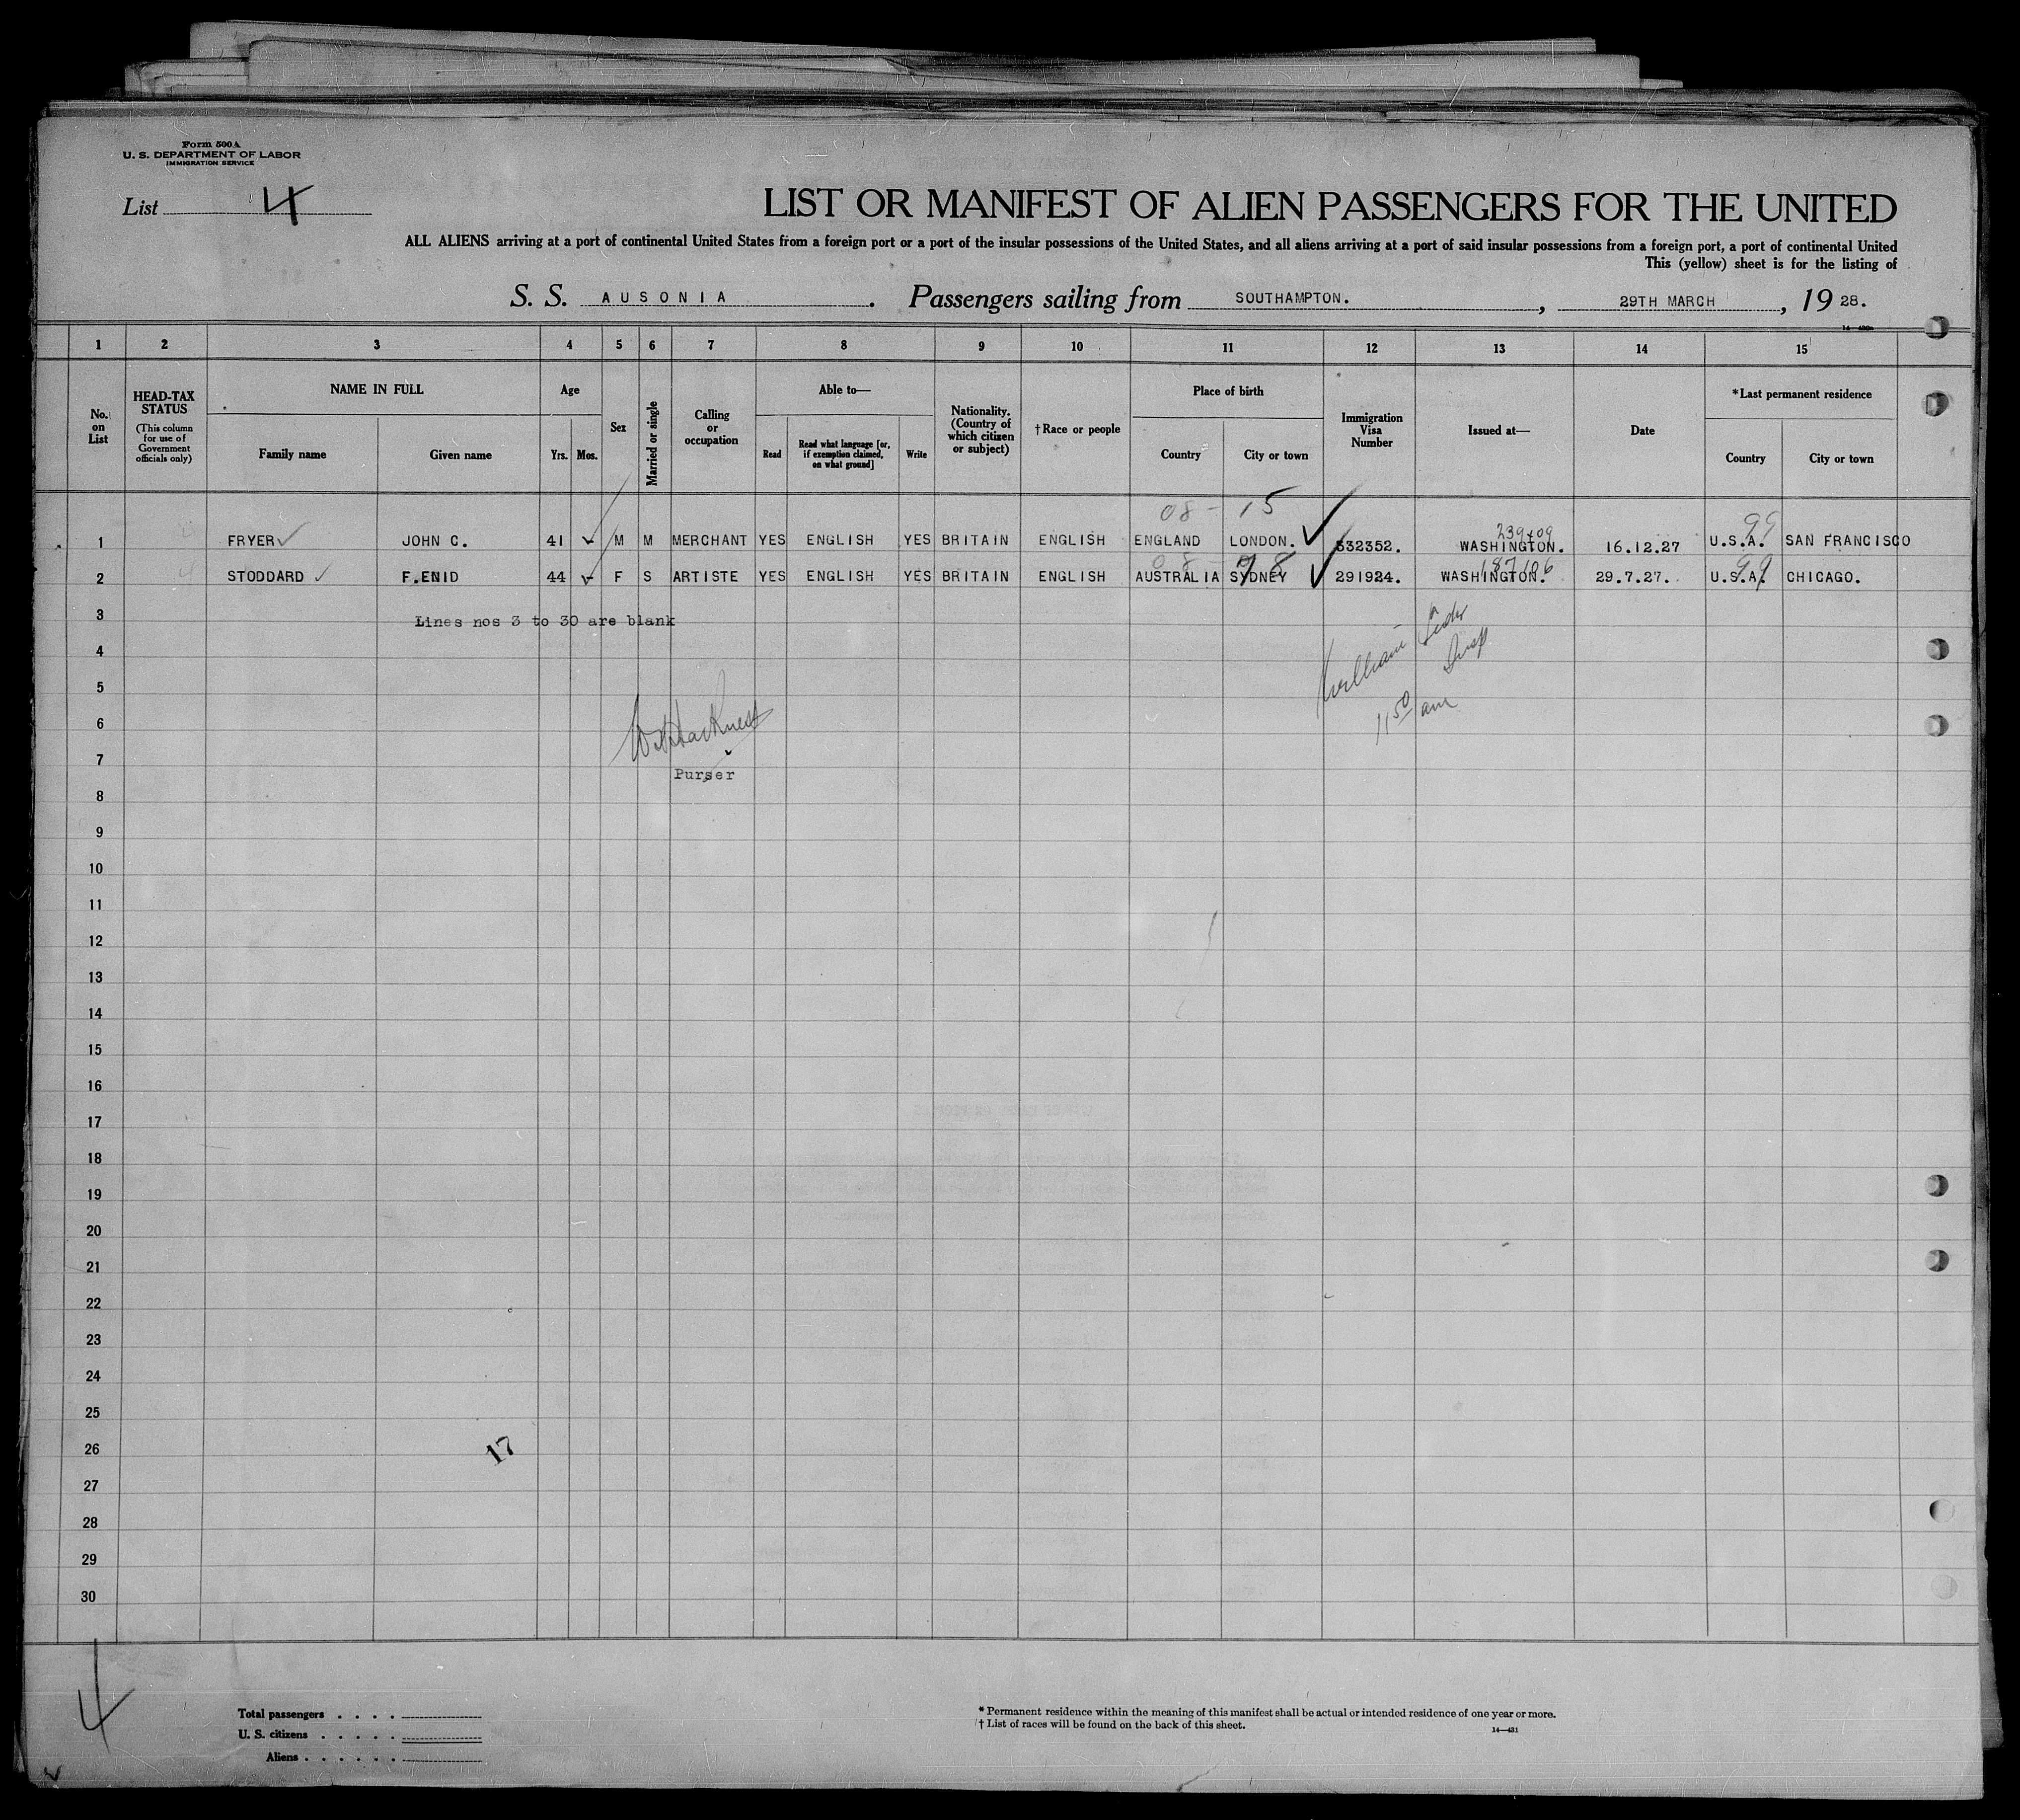 Form 500A
U. S. DEPARTMENT OF LABOR
IMMIGRATION SERVICE
List 4
LIST OR MANIFEST OF ALIEN PASSENGERS FOR THE UNITED
ALL ALIENS arriving at a port of continental United States from a foreign port or a port of the insular possessions of the United States, and all aliens arriving at a port of said insular possessions from a foreign port, a port of continental United
This (yellow) sheet is for the listing of
S. S. AUSONIA. Passengers sailing from SOUTHAMPTON. , 29TH MARCH , 19 28.
1 2 3 4 5 6 7 8 9 10 11 12 13 14 15
No. on List
HEAD-TAX STATUS
(This column for use of Government officials only)
NAME IN FULL
Family name Given name
Age
Yrs. Mos.
Sex
Married or single
Calling or occupation
Able to—
Read
Read what language [or, if exemption claimed, on what ground]
Write
Nationality. (Country of which citizen or subject)
†Race or people
Place of birth
Country City or town
Immigration Visa Number
Issued at—
Date
*Last permanent residence
Country City or town
08 - 15
99
1 FRYER JOHN C. 41 - M M MERCHANT YES ENGLISH YES BRITAIN ENGLISH ENGLAND LONDON. 332352. WASHINGTON. 16.12.27 U.S.A. SAN FRANCISCO
08 98
187106 99
2 STODDARD F.ENID 44 - F S ARTISTE YES ENGLISH YES BRITAIN ENGLISH AUSTRALIA SYDNEY 291924. WASHINGTON. 29.7.27. U.S.A. CHICAGO.
3 Lines nos 3 to 30 are blank
4
William
5
11 50 am
6
7
Purser
8
9
10
11
12
13
14
15
16
17
18
19
20
21
22
23
24
25
26
17
27
28
29
30
4
Total passengers . . . .
U. S. citizens . . . . .
Aliens . . . . . .
* Permanent residence within the meaning of this manifest shall be actual or intended residence of one year or more.
† List of races will be found on the back of this sheet.
14—431